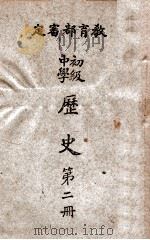 定審部育教
初級
中學
歷史
第二冊